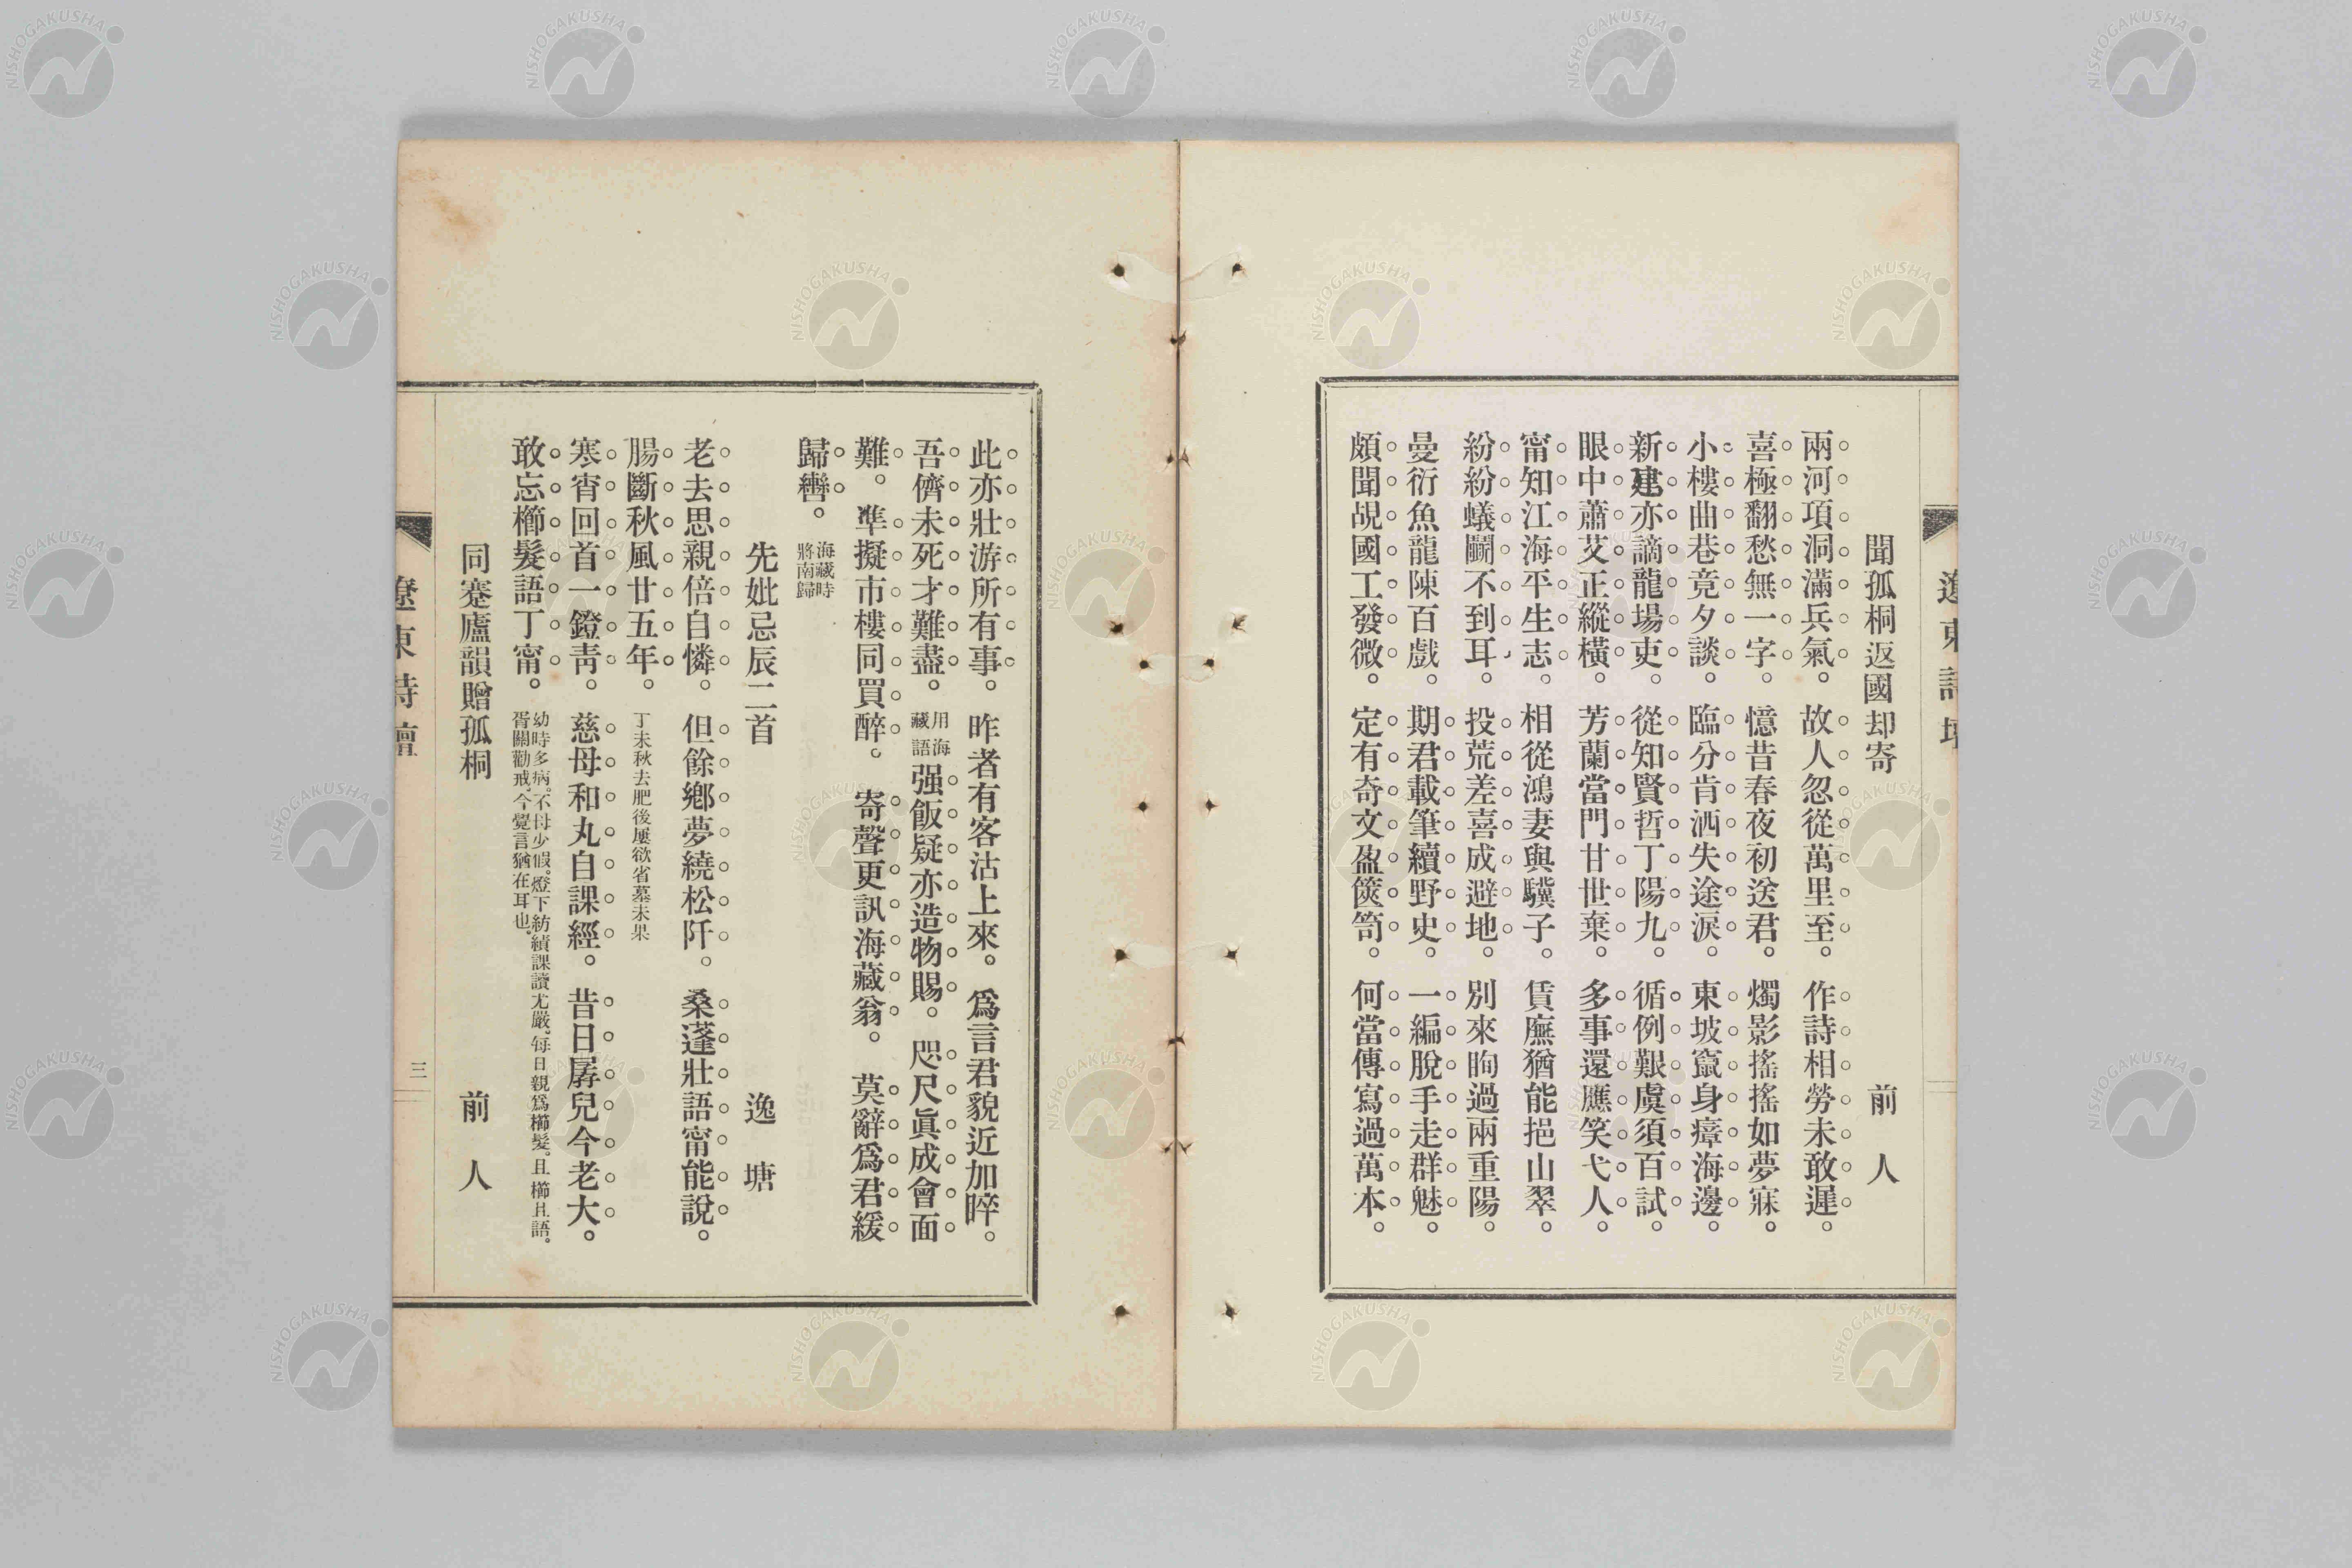 聞孤桐返國却寄　前人
兩河項洞滿兵氣。故人忽從萬里至。作詩相勞未敢遲。
喜極翻愁無一字。憶昔春夜初送君。燭影搖搖如夢寐。
小樓曲巷竟夕談。臨分肯洒失途淚。東坡竄身瘴海邊。
新建亦謫龍場吏。從知賢哲丁陽九。循例艱虞須百試。
眼中蕭艾正縱橫。芳蘭當門甘世棄。多事還應笑弋人。
甯知江海平生志。相從鴻妻與驥子。賃廡猶能挹山翠。
紛紛蟻鬭不到耳。投荒差喜成避地。別來眴過兩重陽。
曼衍魚龍陳百戲。期君載筆續野史。一編脫手走群魅。
頗聞覘國工發微。定有奇文盈篋笥。何當傳寫過萬本。
遼東詩壇
此亦壯游所有事。昨者有客沽上來。爲言君貌近加睟。
吾儕未死才難盡。用海藏語强飯疑亦造物賜。咫尺眞成會面
難。準擬市樓同買醉。寄聲更訊海藏翁。莫辭爲君緩
歸轡。海藏時將南歸
先妣忌辰二首　逸塘
老去思親倍自憐。但餘鄕夢繞松阡。桑蓬壯語甯能說。
腸斷秋風廿五年。丁未秋去肥後屢欲省墓未果
寒宵回首一鐙靑。慈母和丸自課經。昔日孱兒今老大。
敢忘櫛髮語丁甯。幼時多病。不母少假。燈下紡績課讀尤嚴。每日親爲櫛髮。且櫛且語。胥關勸戒。今覺言猶在耳也。
同蹇廬韻贈孤桐　前人
遼東詩壇　三
NISHOGAKUSHA